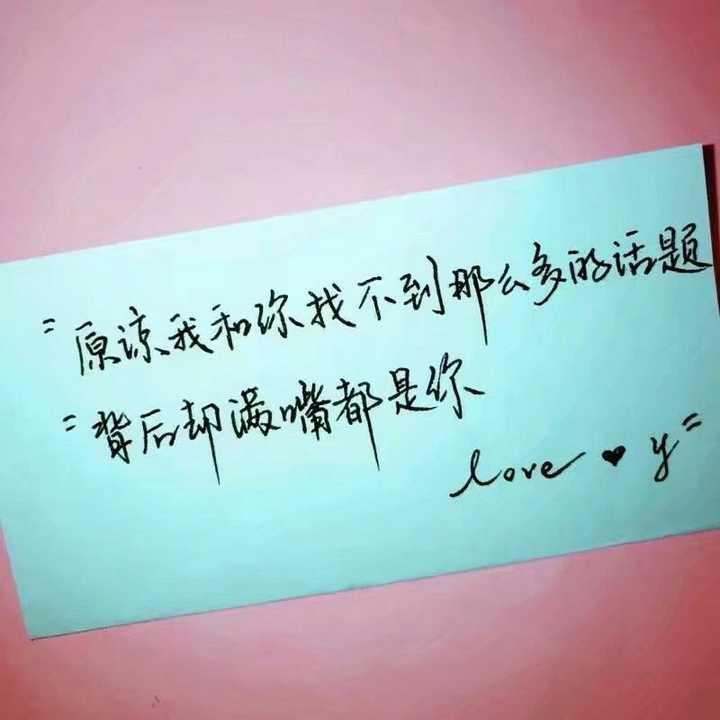 "原谅我和你找不到那么多的话题
"背后却满嘴都是你
love ♥ y"